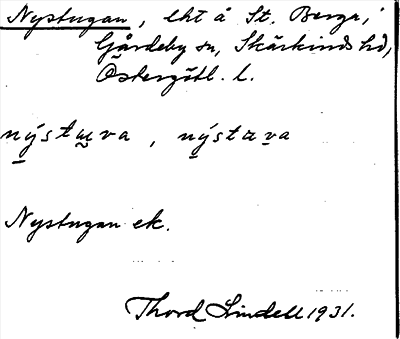 Nystugan, lht å St. Berga,
Gårdeby sn, Skärkinds hd,
Östergötl. l.
nýstɯva, nýstava
Nystugan ek.
Thord Lindell 1931.